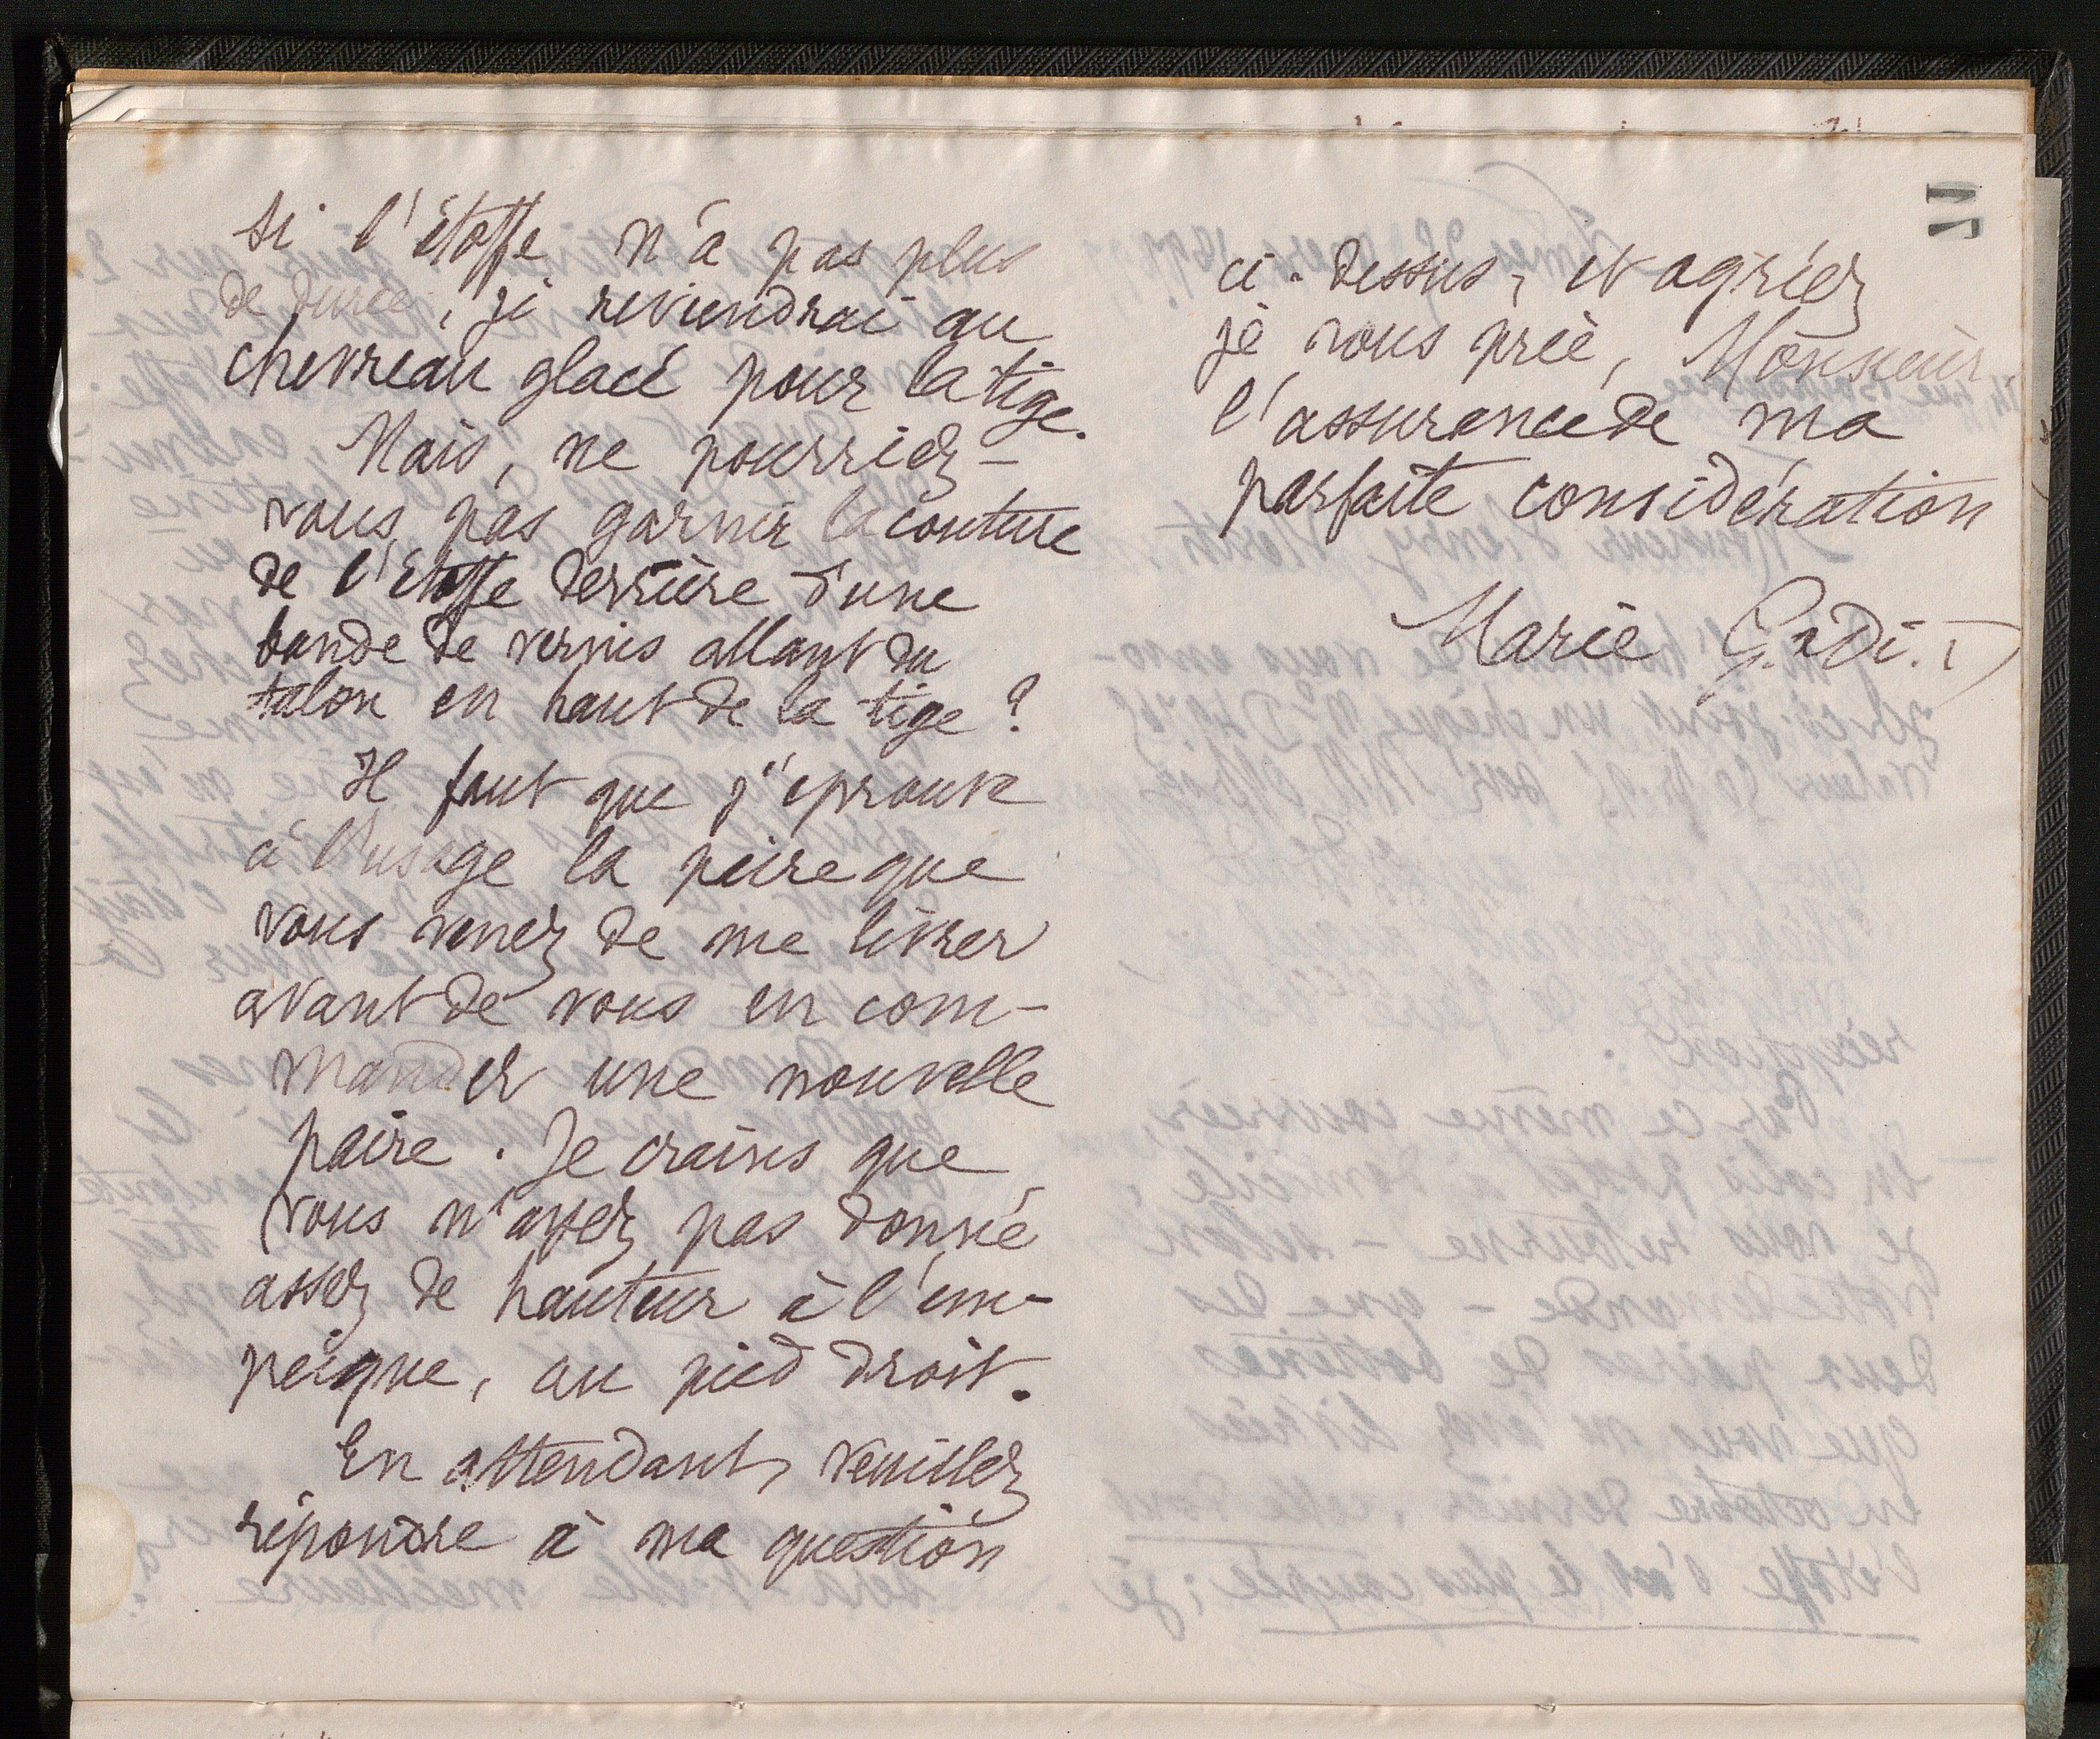 si l'étoffe n'a pas plus
de durée, je reviendrai au
chevreau glacé pour la tige.
Mais, ne pourriez-
vous pas garnir la couture
de l'étoffe derrière d'une
bande de vernis allant du
talon en haut de la tige ?
Il faut que j'éprouve
à l'usage la paire que
vous venez de me livrer
avant de vous en com-
mander une nouvelle
paire. Je crains que
vous n'ayez pas donné
assez de hauteur à l'em-
peigne, au pied droit.
En attendant, veuillez
répondre à ma question
ci-dessus, et agréez
je vous prie, Monsieur,
l'assurance de ma
parfaite considération
Marie